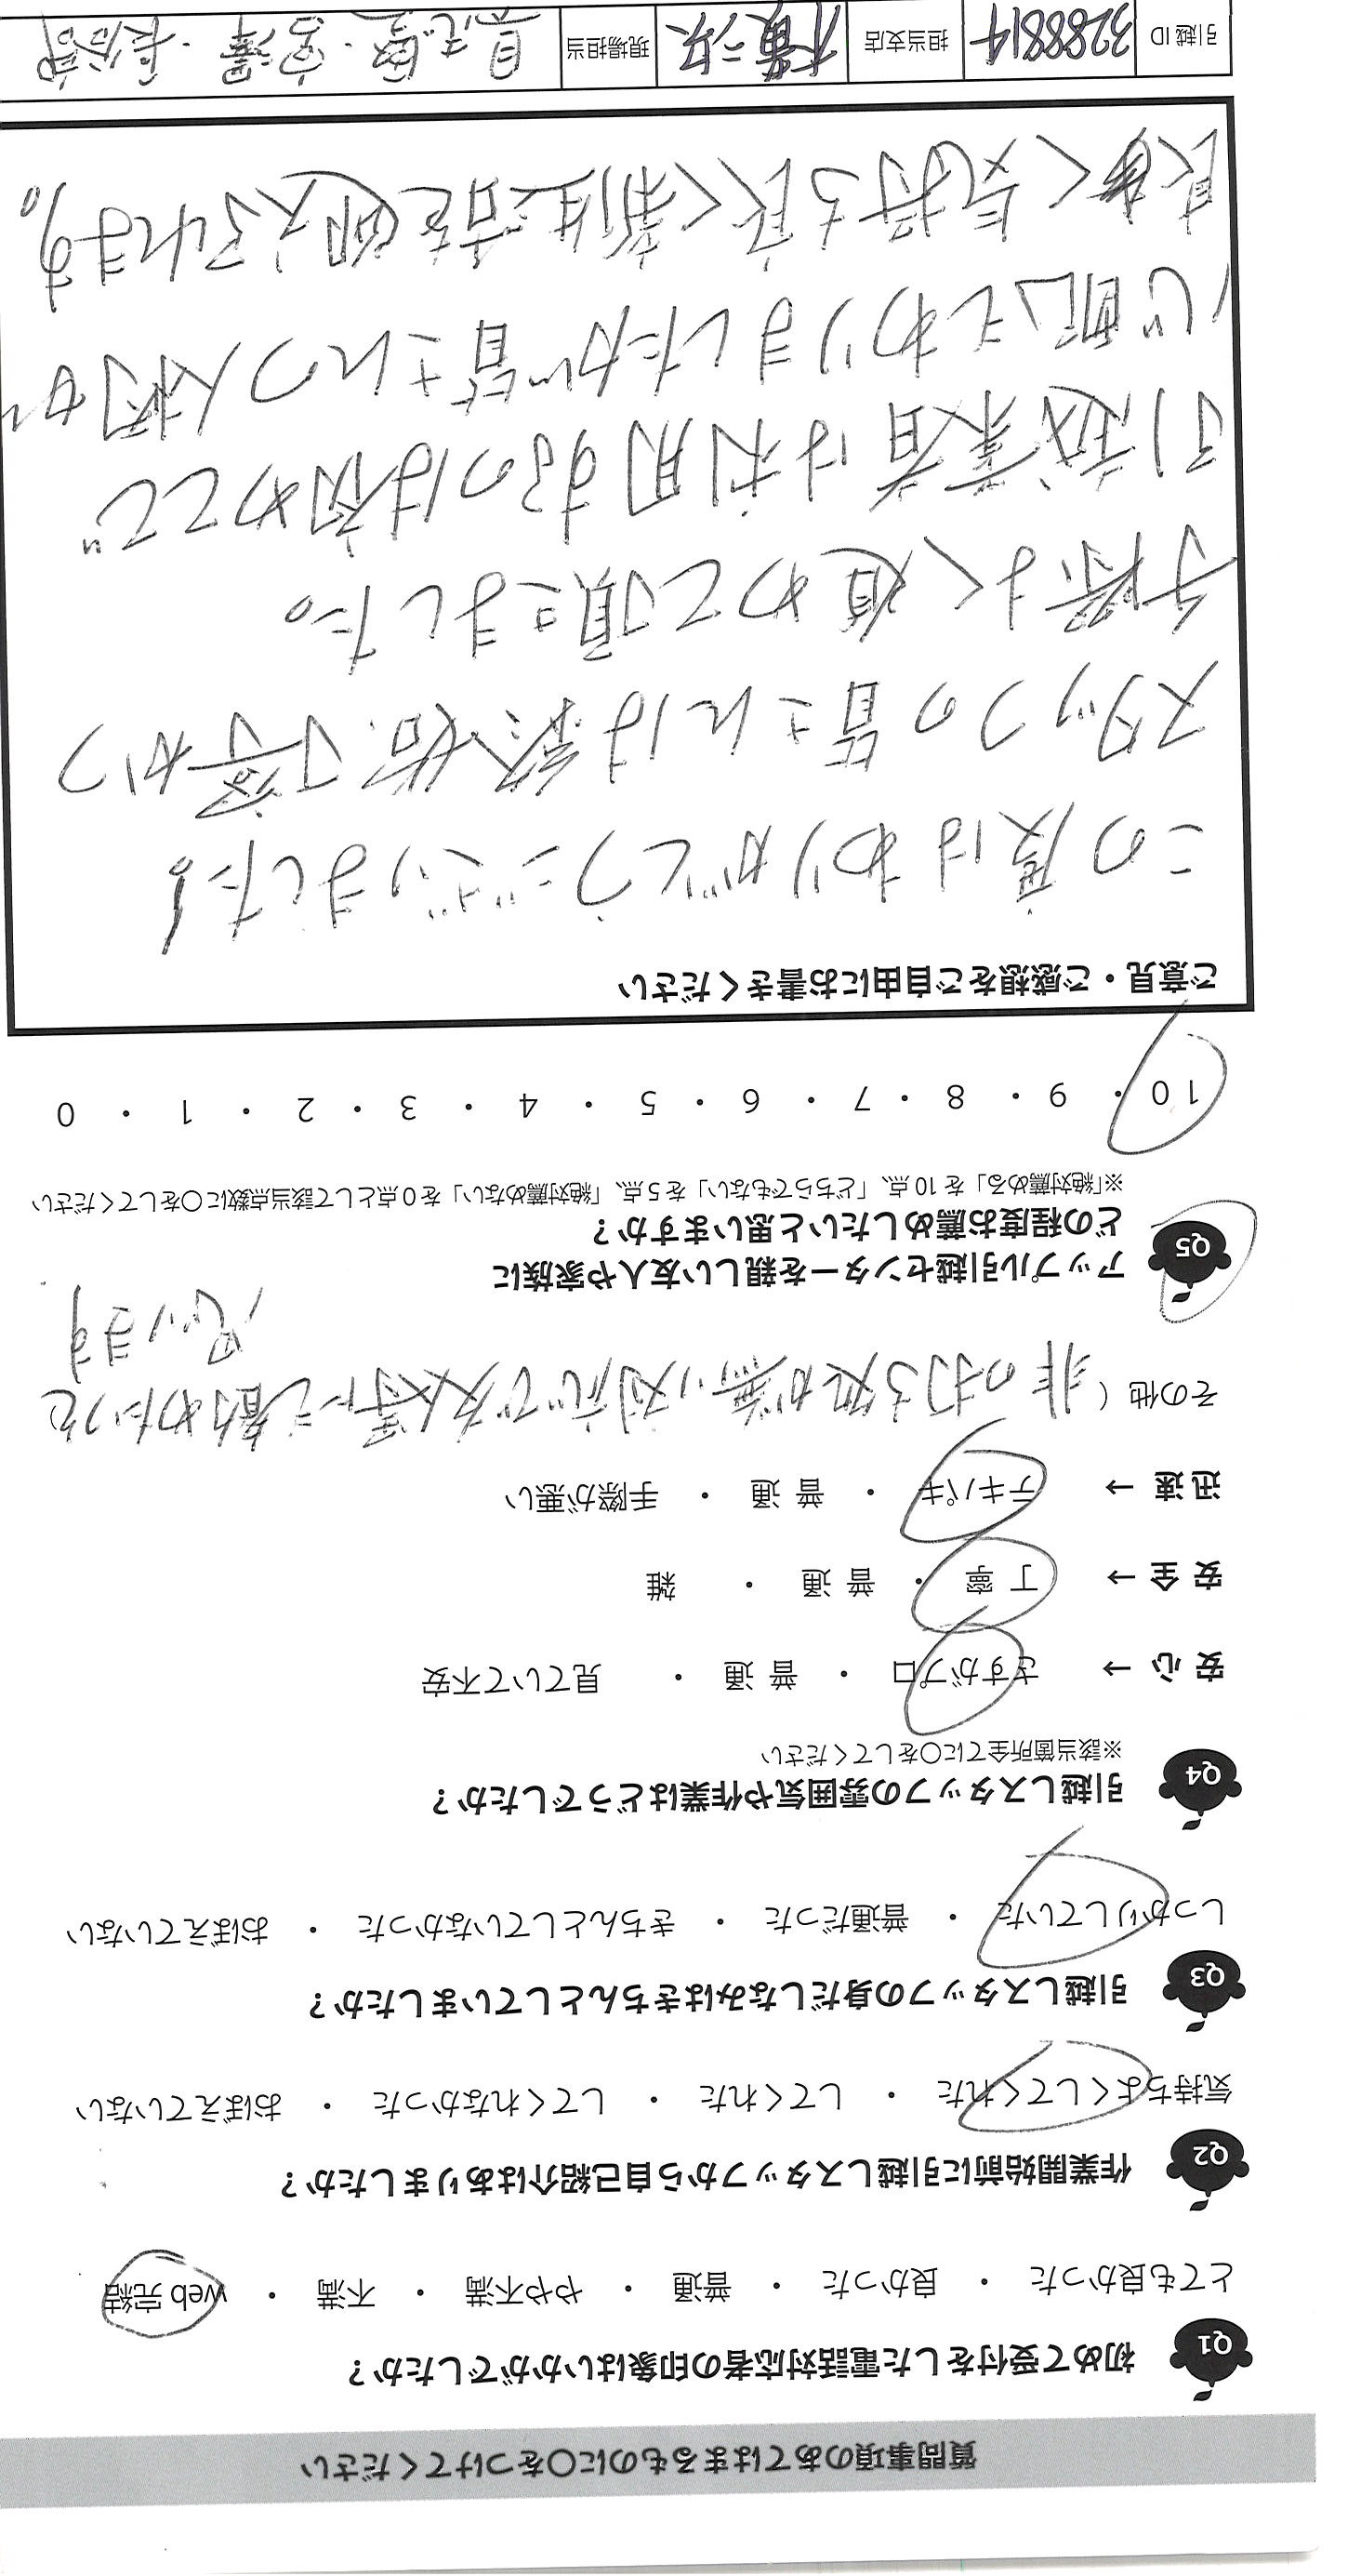 質問事項のあてはまるものに〇をつけてください
Q1 初めて受付をした電話対応者の印象はいかがでしたか？
とても良かった ・ 良かった ・ 普通 ・ やや不満 ・ 不満 ・ web完結
Q2 作業開始前に引越しスタッフから自己紹介はありましたか？
気持ちよくしてくれた ・ してくれた ・ してくれなかった ・ おぼえていない
Q3 引越しスタッフの身だしなみはきちんとしていましたか？
しっかりしていた ・ 普通だった ・ きちんとしていなかった ・ おぼえていない
Q4 引越しスタッフの雰囲気や作業はどうでしたか？
※該当箇所全てに〇をしてください
安心 → さすがプロ ・ 普通 ・ 見ていて不安
安全 → 丁寧 ・ 普通 ・ 雑
迅速 → テキパキ ・ 普通 ・ 手際が悪い
その他 ( 非の打ち処が無い対応で友人等に勧めたいと
思います
Q5 アップル引越センターを親しい友人や家族に
どの程度お薦めしたいと思いますか？
※「絶対薦める」を10点、「どちらでもない」を5点、「絶対薦めない」を0点として該当点数に〇をしてください
10 ・ 9 ・ 8 ・ 7 ・ 6 ・ 5 ・ 4 ・ 3 ・ 2 ・ 1 ・ 0
ご意見・ご感想をご自由にお書きください
この度はありがとうございました！
スタッフの皆さんは終始、丁寧かつ
手際よく進めて頂きました。
引越業者は利用するのは初めてで
心配でありましたが皆さんの人柄が
良く気持ち良く新生活を迎えられます。
引越ID 3288814 担当支店 横浜 現場担当 宮澤・長谷部